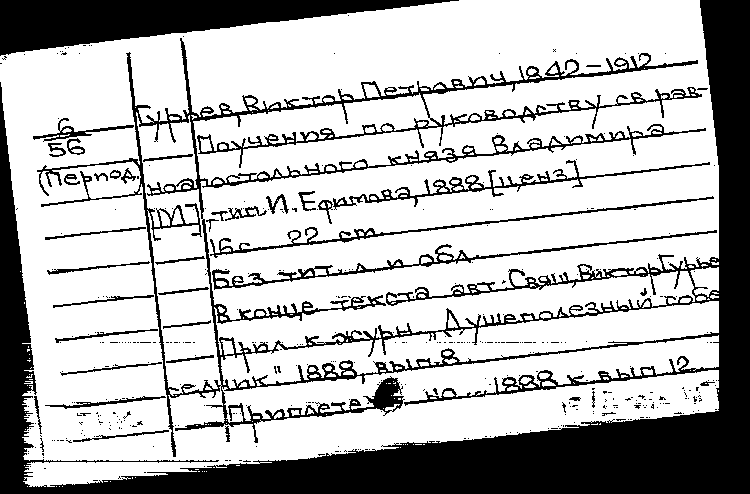 Гурьев, Виктор Петрович, 1842-1912.
6
56
(Период)
Поучения по руководству св. рав-
ноапостольного князя Владимира
[М], тип. И. Ефимова, 1888 [ценз]
16 с. 22 cm.
Без тит. л и обл.
В конце текста авт.: Свящ. Виктор Гурье
Прил к журн. „Душеполезный собе
седник." 1888, вып. 8.
Приплетен но... 1888 к вып 12